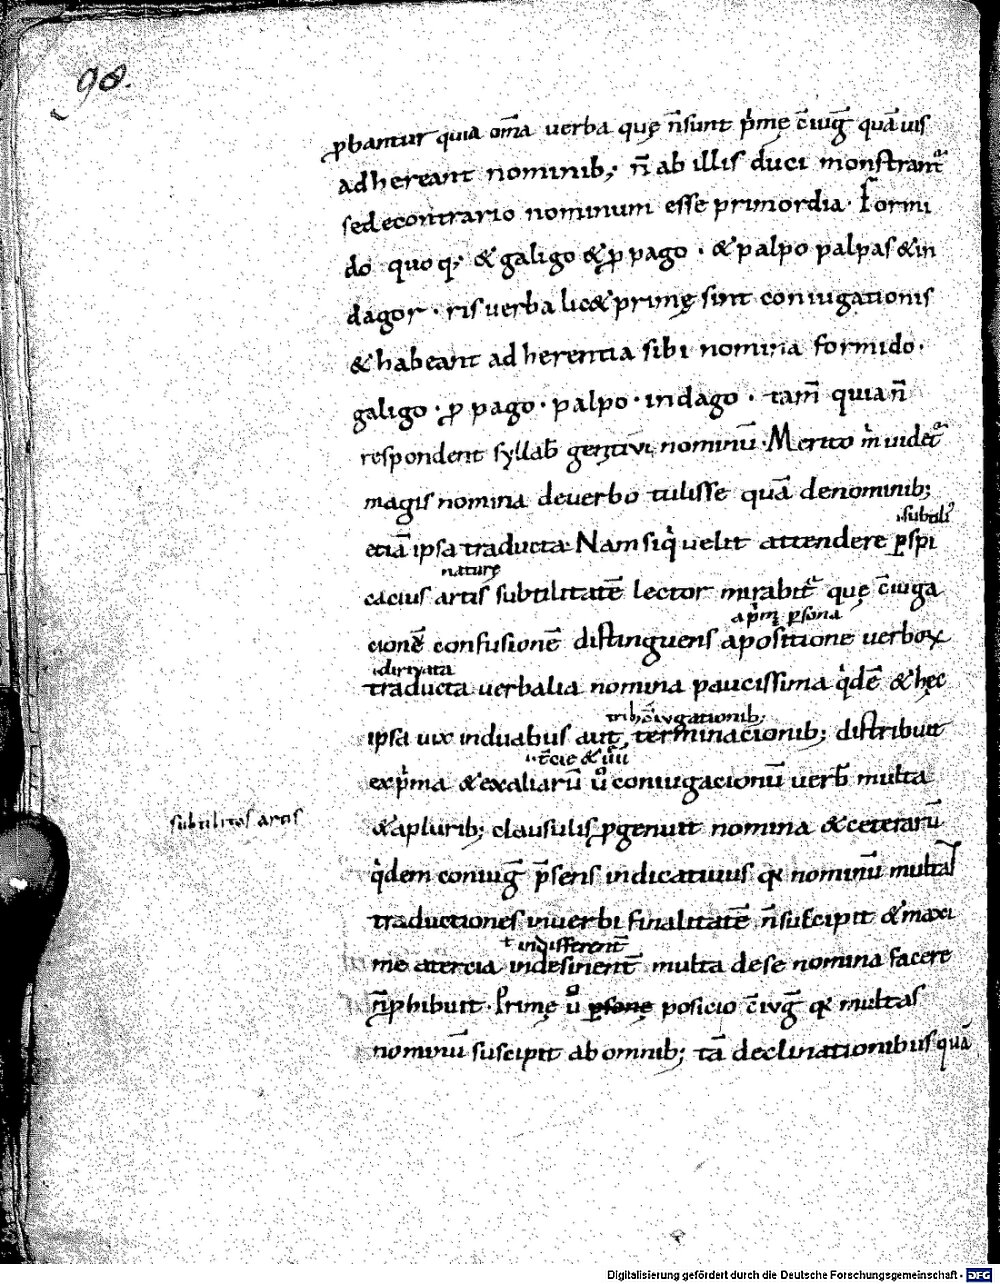 98.
ꝓbantur quia om̄a uerba quę n̄ sunt p̍mę c̄iuḡ quā uis
adhereant nominib; n̄ ab illis duci monstrant᷑
sed econtrario nominum esse primordia · Formi
do quoq; & galigo & ꝓpago · & palpo palpas & in
dagor · ris uerba lic& primę sint coniugationis
& habeant adherentia sibi nomina formido ·
galigo · ꝓpago · palpo · indago · tam̄ quia n̄
respondent syllab̄ genitiui nominū · Merito m̍ uidet᷑
magis nomina de uerbo tulisse quā de nominib;
.i. subtili᷒
etiā ipsa traducta · Nam siq̍ uelit attendere ꝑspi
naturę
cacius artis subtilitatē lector mirabit᷑ quę c̄iuga
a p̍mę ꝑsona
cionē confusionē distinguens a positione uerboꝝ
.i. diriuata
traducta uerbalia nomina paucissima q̍dē & hęc
trib; c̄iugationib;
ipsa uix in duabus aut terminacionib; distribuit
.i. t̄cie & .iiii.
ex p̍ma & ex aliarū ů coniugacionū uerb̄ multa
subtilitas artis
& a plurib; clausulis ꝓgenuit nomina & ceterarū
q̍dem coniuḡ p̄sens indicatiuus qꝛ nominū multas
traductiones in uerbi finalitatē n̄ suscipit & maxi
ł indifferent̄
me a tercia indesinent̄ multa de se nomina facere
n̄ ꝓhibuit · Primę ů ꝑsonę posicio c̄iuḡ qꝛ multas
nominū suscipit ab omnib; tā declinationibus quā
Digitalisierung gefördert durch die Deutsche Forschungsgemeinschaft - DFG